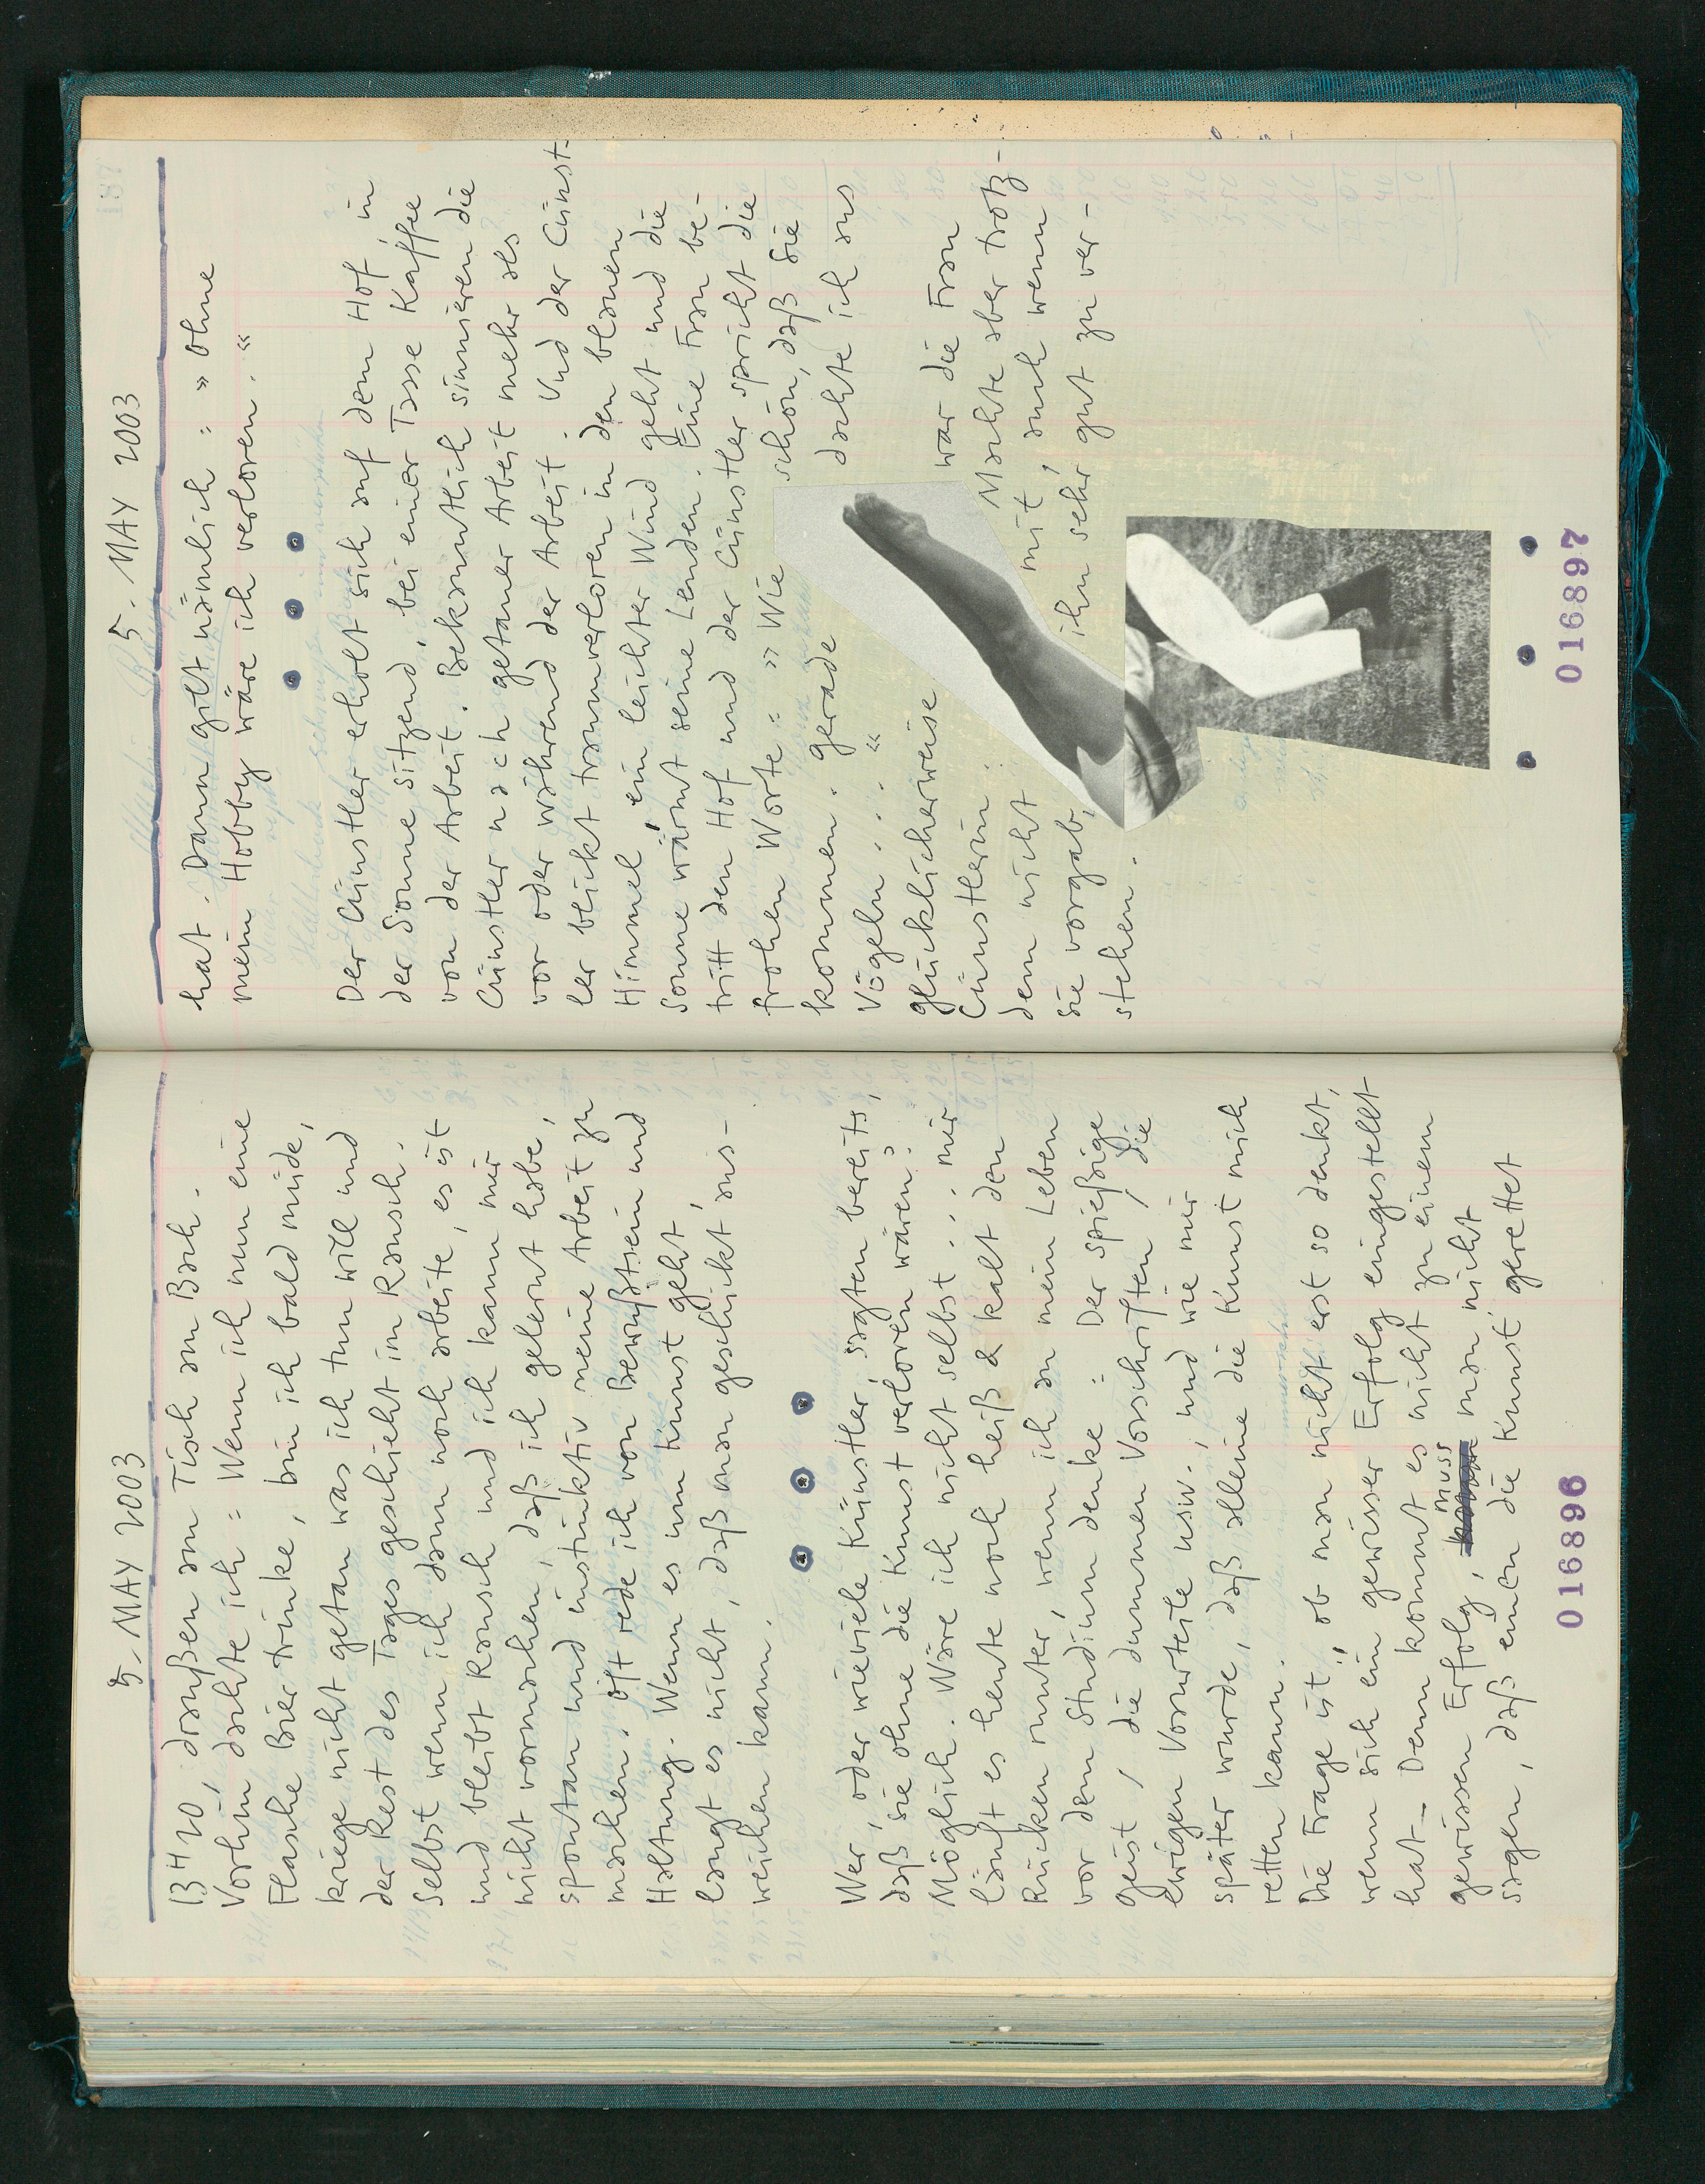 5. MAY 2003
13H20, draußen am Tisch am Bach.
Vorhin dachte ich: Wenn ich nun eine
Flasche Bier trinke, bin ich bald müde,
kriege nicht getan was ich tun will und
der Rest des Tages geschieht im Rausch.
Selbst wenn ich dann noch arbeite, es ist
und bleibt Rausch und ich kann mir
nicht vormachen, daß ich gelernt habe,
spontan und instinktiv meine Arbeit zu
machen. Oft rede ich von Bewußtsein und
Haltung. Wenn es um Kunst geht,
langt es nicht, daß man geschickt aus-
weichen kann.
Wer, oder wieviele Künstler, sagten bereits,
daß sie ohne die Kunst verloren wären?
Möglich. Wäre ich nicht selbst... mir
läuft es heute noch heiß & kalt den
Rücken runter, wenn ich an mein Leben
vor dem Studium denke: Der spießige
Geist, die dummen Vorschriften, die
ewigen Vorurteile usw., und wie mir
später wurde, daß alleine die Kunst mich
retten kann.
Die Frage ist, ob man nicht erst so denkt,
wenn sich ein gewisser Erfolg eingestellt
hat. Denn kommt es nicht zu einem
muss
gewissen Erfolg, man nicht
sagen, daß einen die Kunst gerettet
016896
5. MAY 2003
hat. Dann gilt nämlich: »Ohne
mein Hobby wäre ich verloren.«
Der Cünstler erholt sich auf dem Hof, in
der Sonne sitzend, bei einer Tasse Kaffee
von der Arbeit. Bekanntlich sinnieren die
Cünstler nach getaner Arbeit mehr als
vor oder während der Arbeit. Und der Cünst-
ler blickt traumverloren in den blauen
Himmel, ein leichter Wind geht und die
Sonne wärmt seine Lenden. Eine Frau be-
tritt den Hof und der Cünstler spricht die
frohen Worte: »Wie schön, daß Sie
kommen. gerade dachte ich ans
Vögeln...«
glücklicherweise war die Frau
Cünstlerin. Machte aber trotz-
dem nicht mit, auch wenn
sie vorgab, ihn sehr gut zu ver-
stehen.
016897